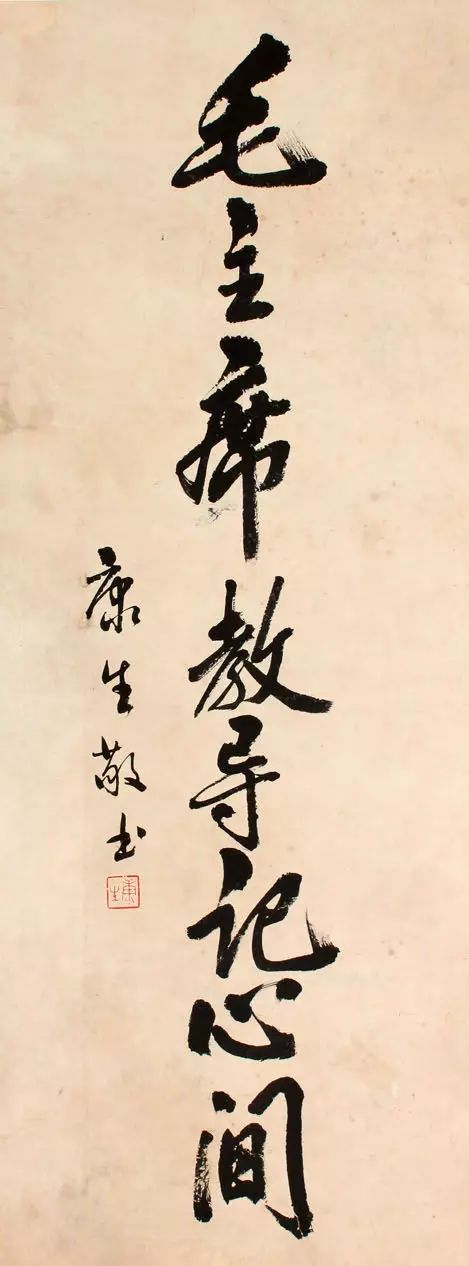 毛主席教导记心间
康生敬书
康生